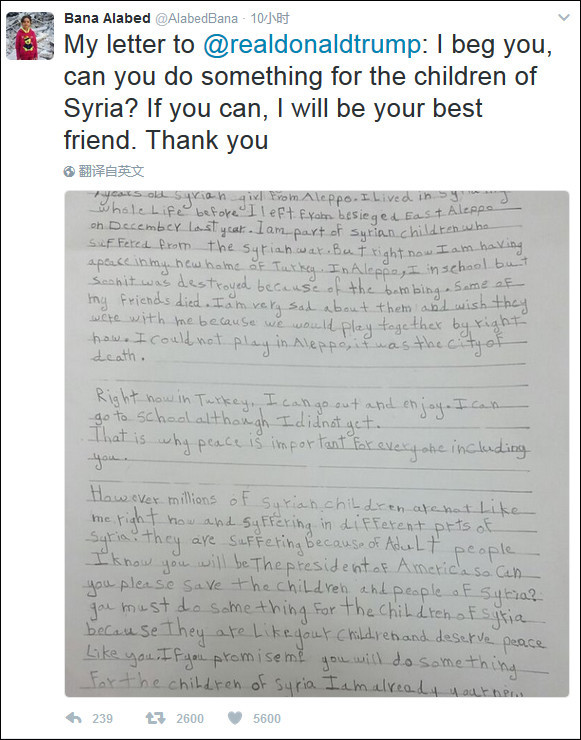 Bana Alabed @AlabedBana · 10小时
My letter to @realdonaldtrump: I beg you,
can you do something for the children of
Syria? If you can, I will be your best
friend. Thank you
翻译自英文
years old Syrian girl from Aleppo. I Lived in
whole Life before I left from besieged East Aleppo
on December last year. I am part of Syrian children who
suffered from the syrian war. But right now I am having
apeace in my new home of Turkey. In Aleppo, I in school but
soon it was destroyed because of the bombing. Some of
my friends died. I am very sad about them and wish they
were with me because we would play together by right
now. I could not play in Aleppo, it was the city of
death.
Right now in Turkey, I can go out and enjoy. I can
go to school although I didnot yet.
That is why peace is important for everyone including
you.
However millions of syrian children are not Like
me right now and syffering in different prts of
syria. they are suffering because of Adult people
I know you will be The president of America so Can
you please save the children and people of syria?
you must do something for the children of syria
because They are Like your children and deserve peace
Like you. If you promise me you will do something
for the children of syria I am already your new
239 2600 5600